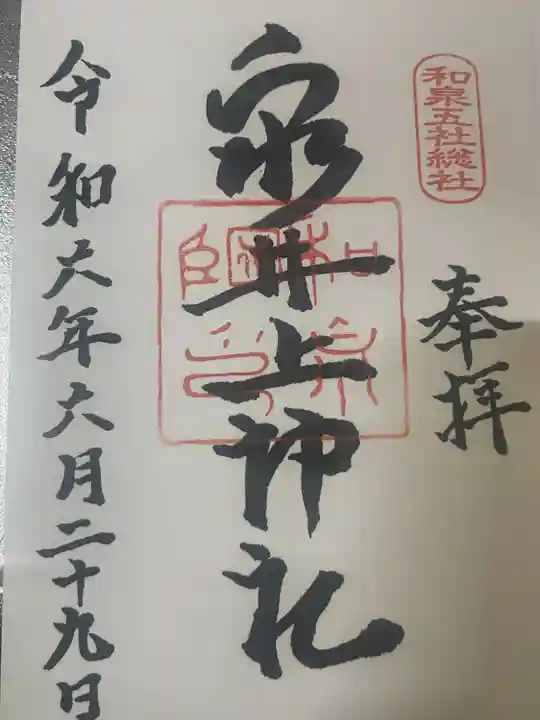 和泉五社総社
奉拝
泉井上神社
令和六年六月二十九日